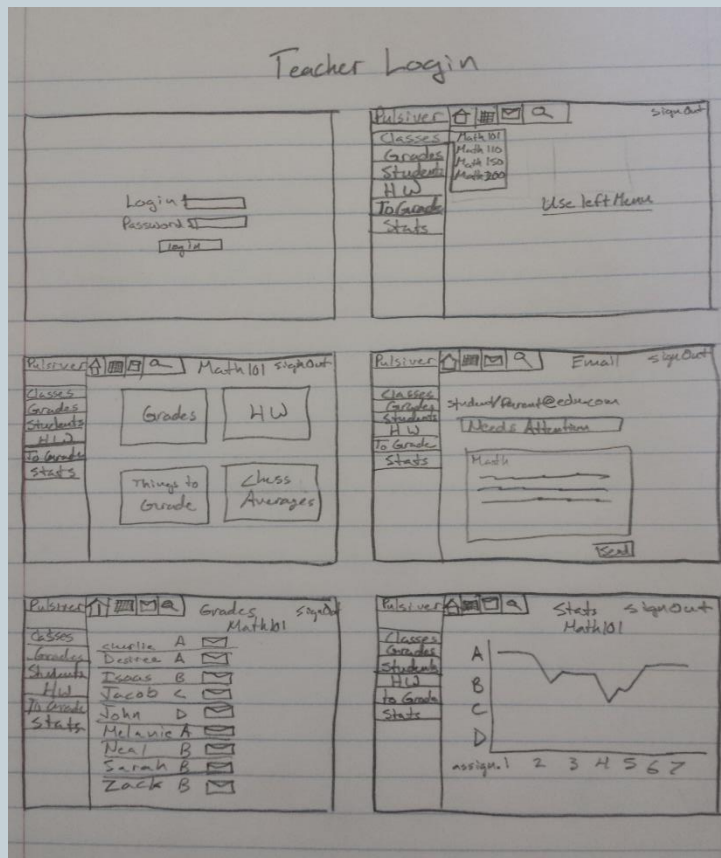 Teacher Login
Login
Password
login
Pulsiver
Sign Out
Classes
Grades
Students
HW
To Grade
Stats
Math 101
Math 110
Math 150
Math 200
Use left Menu
Pulsiver
Math 101
Sign Out
Classes
Grades
Students
HW
To Grade
Stats
Grades
HW
Things to
Grade
Class
Averages
Pulsiver
Email
Sign Out
Classes
Grades
Students
HW
To Grade
Stats
Student/Parent@edu.com
Needs Attention
Math
Send
Pulsiver
Grades
Sign Out
Math 101
Classes
Grades
Students
HW
To Grade
Stats
Charlie A
Desiree A
Isaas B
Jacob C
John D
Melanie A
Neal B
Sarah B
Zack B
Pulsiver
Stats
Sign Out
Math 101
Classes
Grades
Students
HW
to Grade
Stats
A
B
C
D
assign. 1 2 3 4 5 6 7